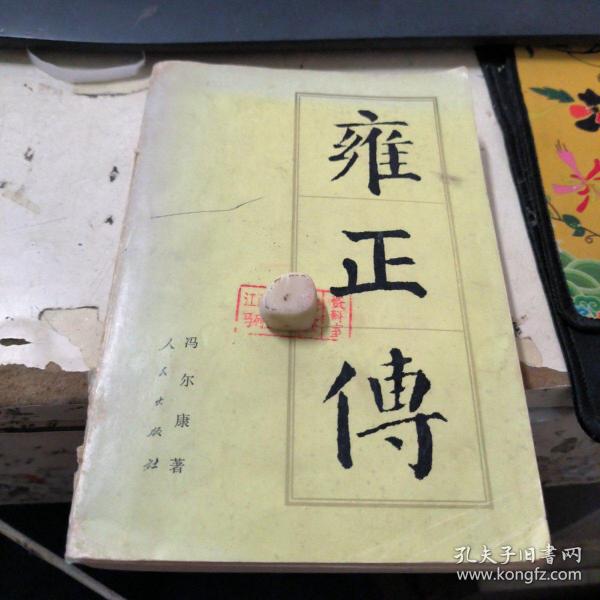 雍正傳
冯尔康 著
人民出版社
江
资料室
孔夫子旧书网
www.kongfz.com